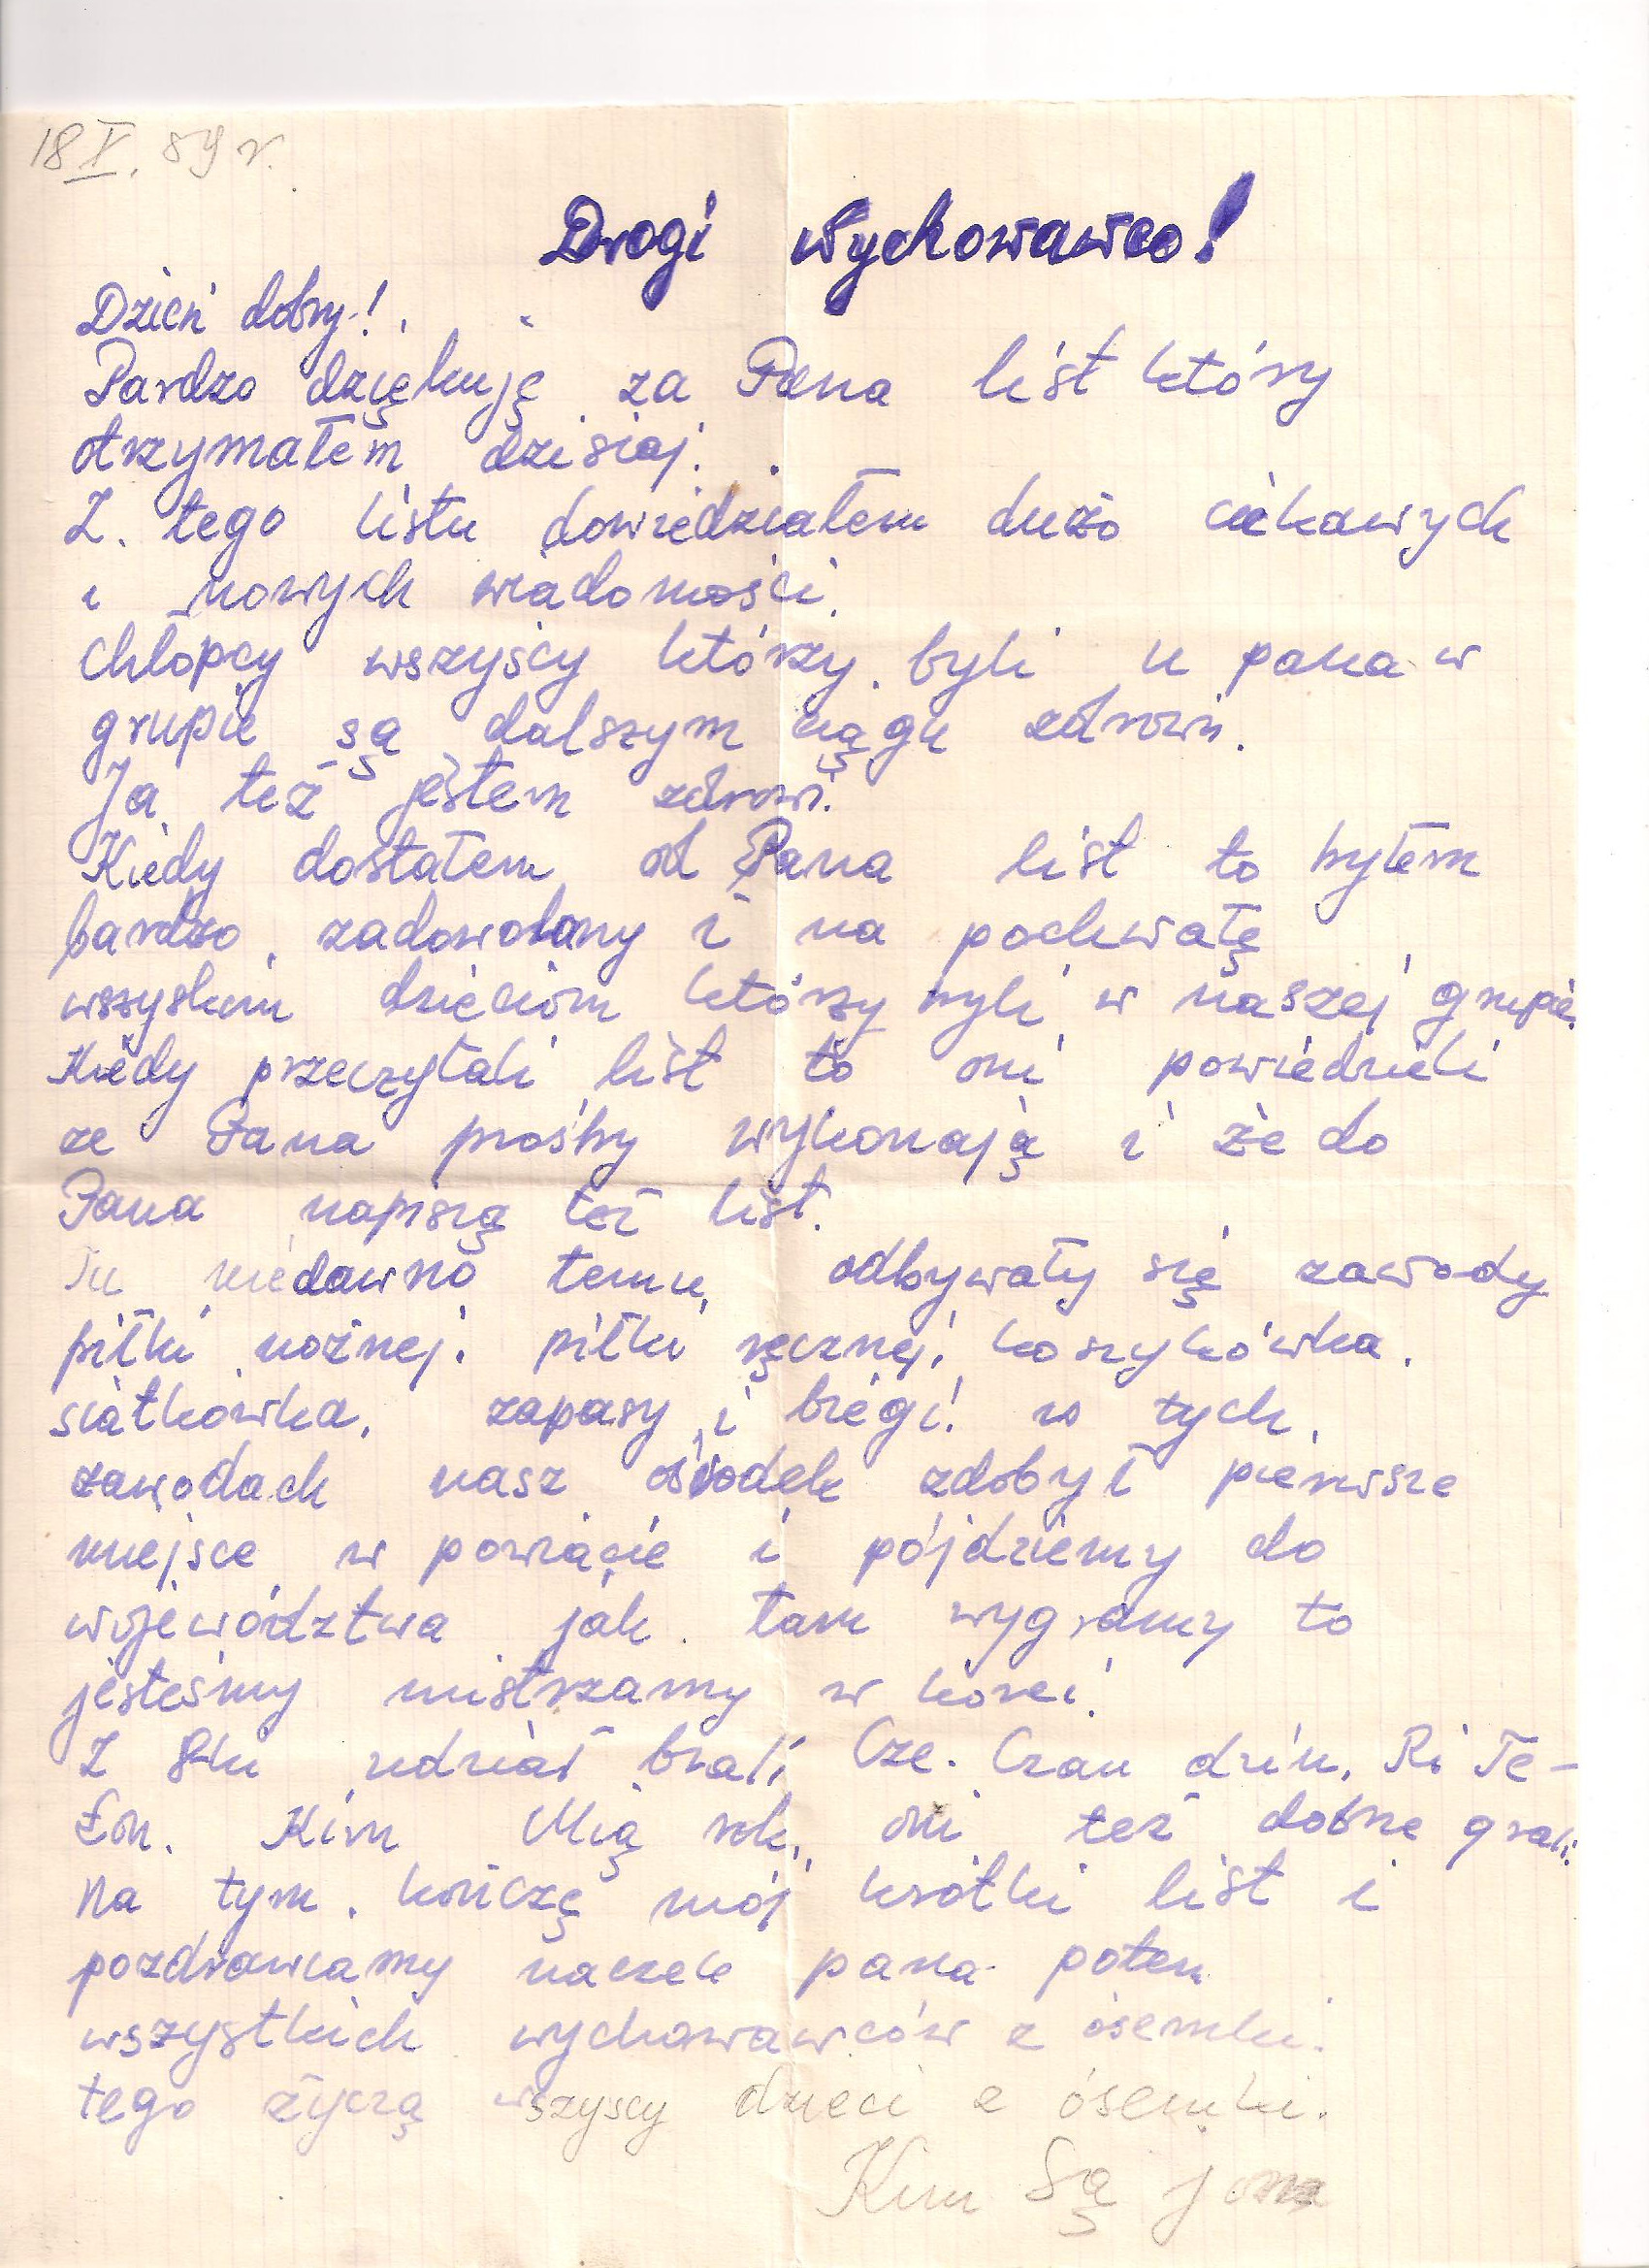 18 X. 59 r.
Drogi Wychowawco!
Dzień dobry!
Pardzo dziękuję za Pana list który
otrzymałem dzisiaj.
Z tego listu dowiedziałem dużo ciekawych
i nowych wiadomości.
Chłopcy wszyścy którzy byli u pana w
grupie są dalszym ciągu zdrowi.
Ja też jestem zdrowi.
Kiedy dostałem od Pana list to byłem
bardzo zadowolany i na pochwałę
wszyskim dzieciom którzy byli w naszej grupie.
Kiedy przeczytali list to oni powiedzieli
ze Pana prośby wykonają i że do
Pana napiszą też list.
Tu niedawno temu, odbywały się zawody
piłki nożnej. piłki ręcznej, koszykówka.
siatkówka, zapasy i biegi. w tych
zawodach nasz ośrodek zdobył pierwsze
miejsce w powiacie i pójdziemy do
województwa jak tam wygramy to
jesteśmy mistrzamy w korei.
Z 8ki udział brali Cze. Czan dzin, Ri Te-
Łon. Kim Mią rok, oni też dobrze grali.
Na tym kończę mój krótki list i
pozdrawiamy naczele pana potem
wszystkich wychowawców z ósemki.
tego życzą wszyscy dzieci z ósemki.
Kim Są jon